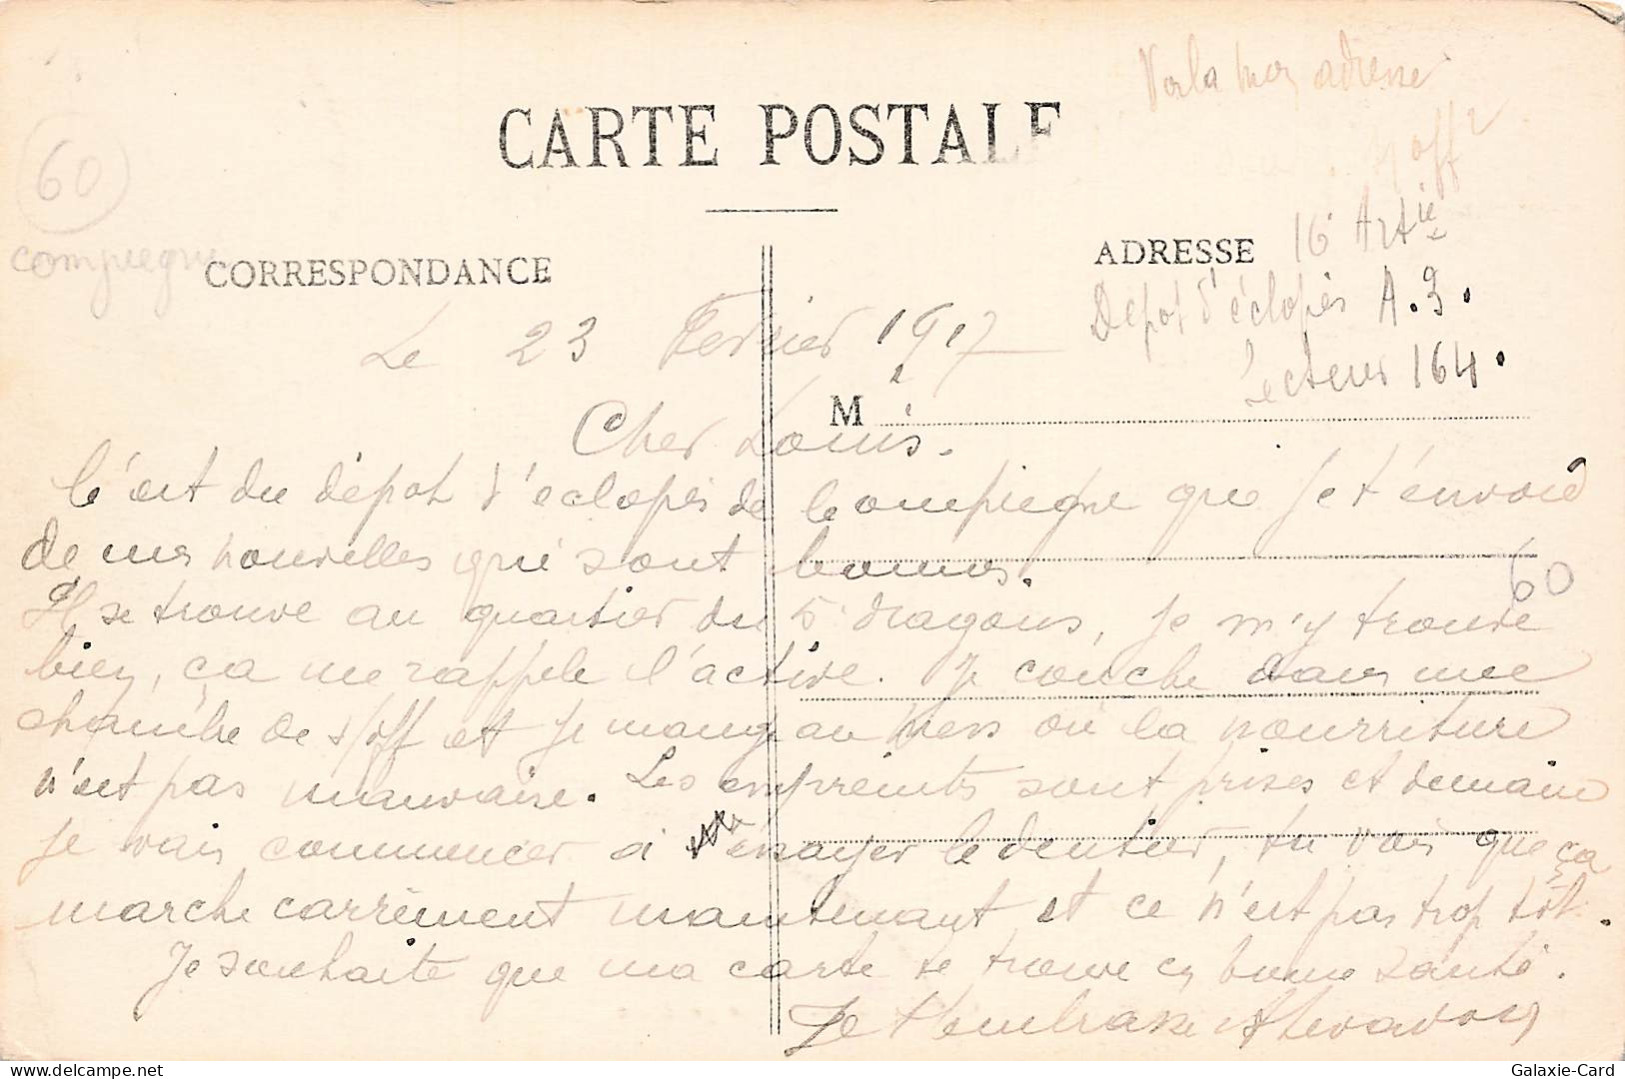 Voila mon adresse
CARTE POSTALE
off
60
16e Artie
ADRESSE
compiegne
CORRESPONDANCE
Depot d'éclopés A.3.
Le 23 Fevrier 1917
Secteur 164.
M
Cher Louis.
C'est du dépot d'eclopés de Compiegne que je t'envoie
de mes nouvelles qui sont bonnes.
60
Il se trouve au quartier du 5e dragons, je m'y trouve
bien, ça me rappele l'active. Je couche dans une
chambre de s/off et je mange au mess où la nourriture
n'est pas mauvaise. Les empreints sont prises et demain
je vais commencer à éssayer le dentier, tu vois que ça
marche carrément maintenant et ce n'est pas trop tôt.
Je souhaite que ma carte te trouve en bonne santé.
Je t'embrasse
Galaxie-Card